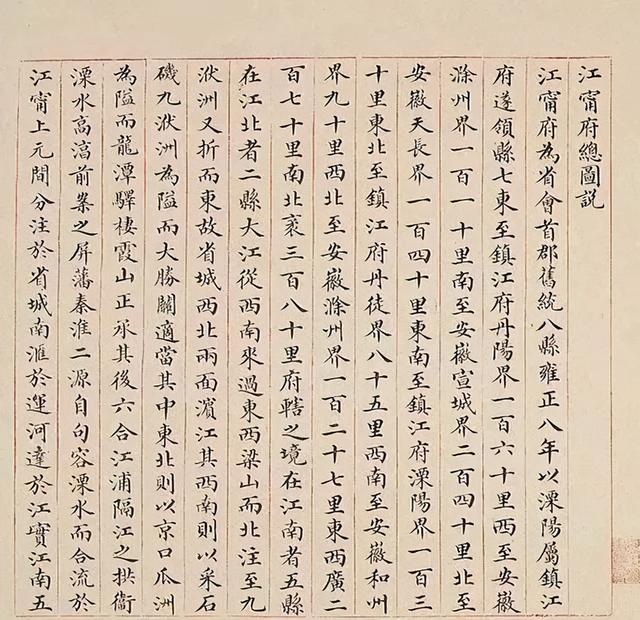 江甯府總圖説
江甯府為省會首郡舊統八縣雍正八年以溧陽屬鎮江
府遂領縣七東至鎮江府丹陽界一百六十里西至安徽
滁州界一百一十里南至安徽宣城界二百四十里北至
安徽天長界一百四十里東南至鎮江府溧陽界一百三
十里東北至鎮江府丹徒界八十五里西南至安徽和州
界九十里西北至安徽滁州界一百二十七里東西廣二
百七十里南北袤三百八十里府轄之境在江南者五縣
在江北者二縣大江從西南來過東西梁山而北注至九
洑洲又折而東故省城西北兩面濵江其西南則以采石
磯九洑洲為隘而大勝關適當其中東北則以京口瓜洲
為隘而龍潭驛棲霞山正承其後六合江浦隔江之拱衞
溧水高淳前案之屏藩秦淮二源自句容溧水而合流於
江甯上元間分注於省城南滙於運河達於江實江南五